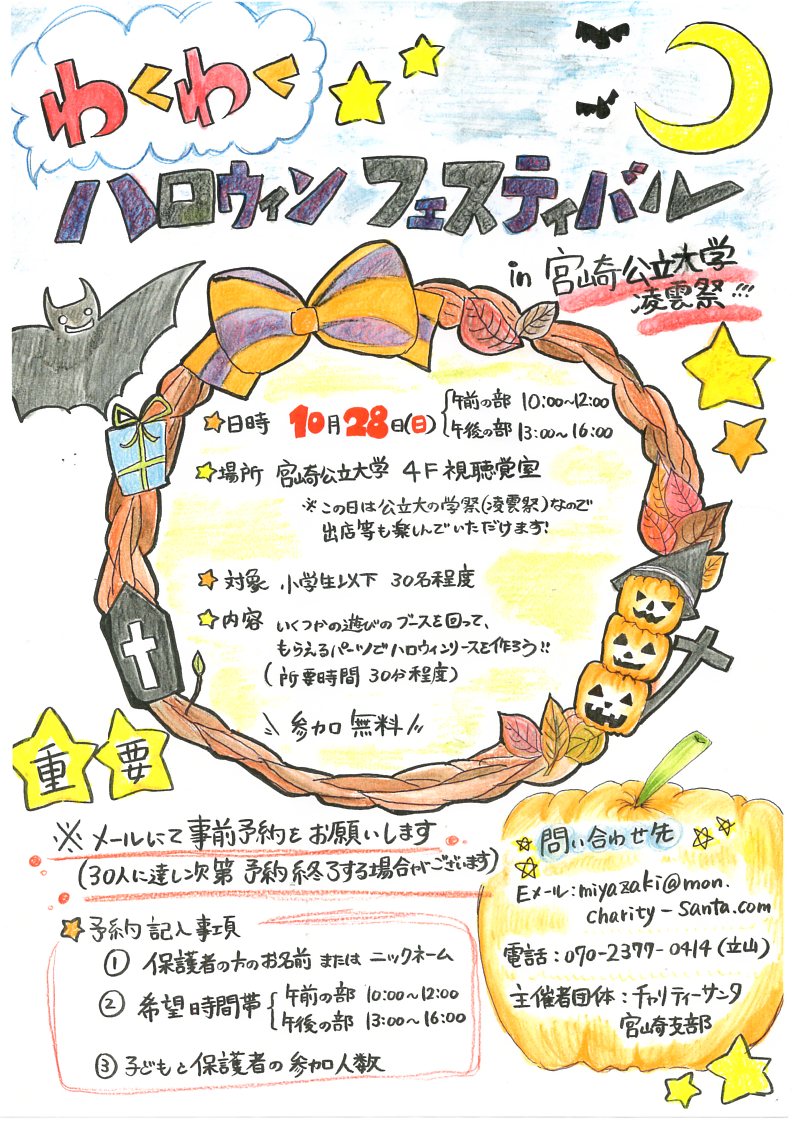 わくわく
ハロウィン フェスティバル
in 宮崎公立大学
凌雲祭!!!
日時 10月28日(日) 午前の部 10:00~12:00
午後の部 13:00~16:00
場所 宮崎公立大学 4F 視聴覚室
※この日は公立大の学祭(凌雲祭)なので
出店等も楽しんでいただけます!
対象 小学生以下 30名程度
内容 いくつかの遊びのブースを回って、
もらえるパーツでハロウィンリースを作ろう!!
(所要時間 30分程度)
\\ 参加無料 //
重要
※メールにて事前予約をお願いします
(30人に達し次第 予約終了する場合がございます)
予約記入事項
① 保護者の方のお名前 または ニックネーム
② 希望時間帯 午前の部 10:00~12:00
午後の部 13:00~16:00
③ 子どもと保護者の参加人数
問い合わせ先
Eメール:miyazaki@mon.
charity-santa.com
電話:070-2377-0414(立山)
主催者団体:チャリティーサンタ
宮崎支部